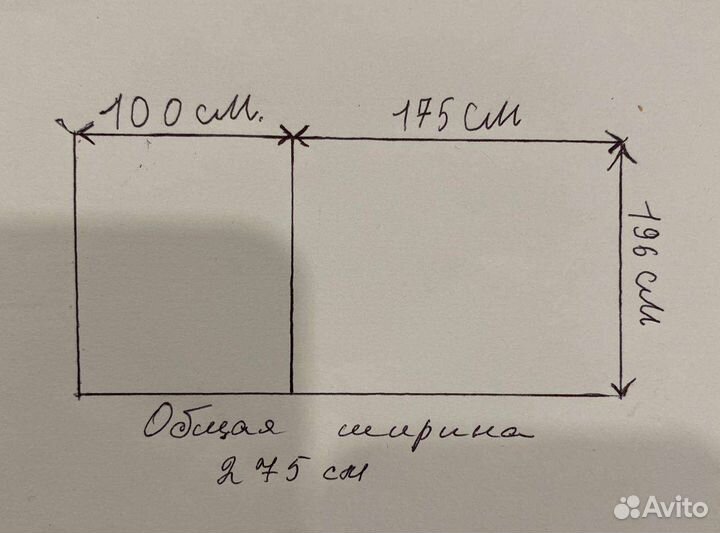 100 см.
175 см
196 см
Общая ширина
275 см
Avito